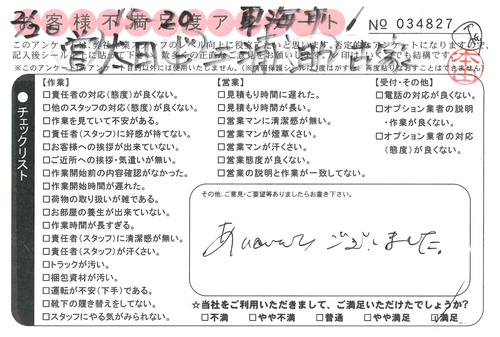 お客様不満足度アンケート!
No 034827
【作業】
□責任者の対応(態度)が良くない。
□他のスタッフの対応(態度)が良くない。
□作業を見ていて不安がある。
□責任者(スタッフ)に好感が持てない。
□お客様への挨拶が出来ていない。
□ご近所への挨拶・気遣いが無い。
□作業開始前の内容確認がなかった。
□作業開始時間が遅れた。
□荷物の取り扱いが雑である。
□お部屋の養生が出来ていない。
□作業時間が長すぎる。
□責任者(スタッフ)に清潔感が無い。
□責任者(スタッフ)が汗くさい。
□トラックが汚い。
□梱包資材が汚い。
□運転が不安(下手)である。
□靴下の履き替えをしてない。
□スタッフにやる気がみられない。
【営業】
□見積もり時間に遅れた。
□見積もり時間が長い。
□営業マンに清潔感が無い。
□営業マンが煙草くさい。
□営業マンが汗くさい。
□営業態度が良くない。
□営業の説明と作業が一致してない。
【受付・その他】
□電話の対応が良くない。
□オプション業者の説明
・作業が良くない。
□オプション業者の対応
(態度)が良くない。
チェックリスト
その他、ご意見・ご要望等ありましたらお書き下さい。
ありがとうございました。
☆当社をご利用いただきまして、ご満足いただけたでしょうか?
□不満 □やや不満 □普通 □やや満足 □満足